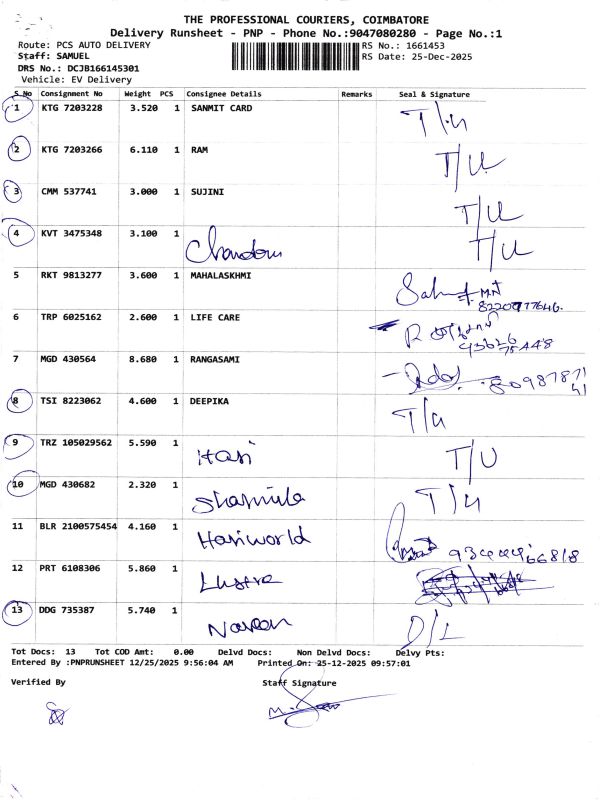 THE PROFESSIONAL COURIERS, COIMBATORE
Delivery Runsheet - PNP - Phone No.:9047080280 - Page No.:1
Route: PCS AUTO DELIVERY RS No.: 1661453
Staff: SAMUEL RS Date: 25-Dec-2025
DRS No.: DCJB166145301
Vehicle: EV Delivery
S No Consignment No Weight PCS Consignee Details Remarks Seal & Signature
1 KTG 7203228 3.520 1 SANMIT CARD T/U
2 KTG 7203266 6.110 1 RAM T/U
3 CMM 537741 3.000 1 SUJINI T/U
4 KVT 3475348 3.100 1 T/U
5 RKT 9813277 3.600 1 MAHALASKHMI
6 TRP 6025162 2.600 1 LIFE CARE
7 MGD 430564 8.680 1 RANGASAMI
8 TSI 8223062 4.600 1 DEEPIKA T/U
9 TRZ 105029562 5.590 1 Hari T/U
10 MGD 430682 2.320 1 Sharmila T/U
11 BLR 2100575454 4.160 1 Hariworld
12 PRT 6108306 5.860 1
13 DDG 735387 5.740 1 Naveen D/L
Tot Docs: 13 Tot COD Amt: 0.00 Delvd Docs: Non Delvd Docs: Delvy Pts:
Entered By :PNPRUNSHEET 12/25/2025 9:56:04 AM Printed On: 25-12-2025 09:57:01
Verified By Staff Signature